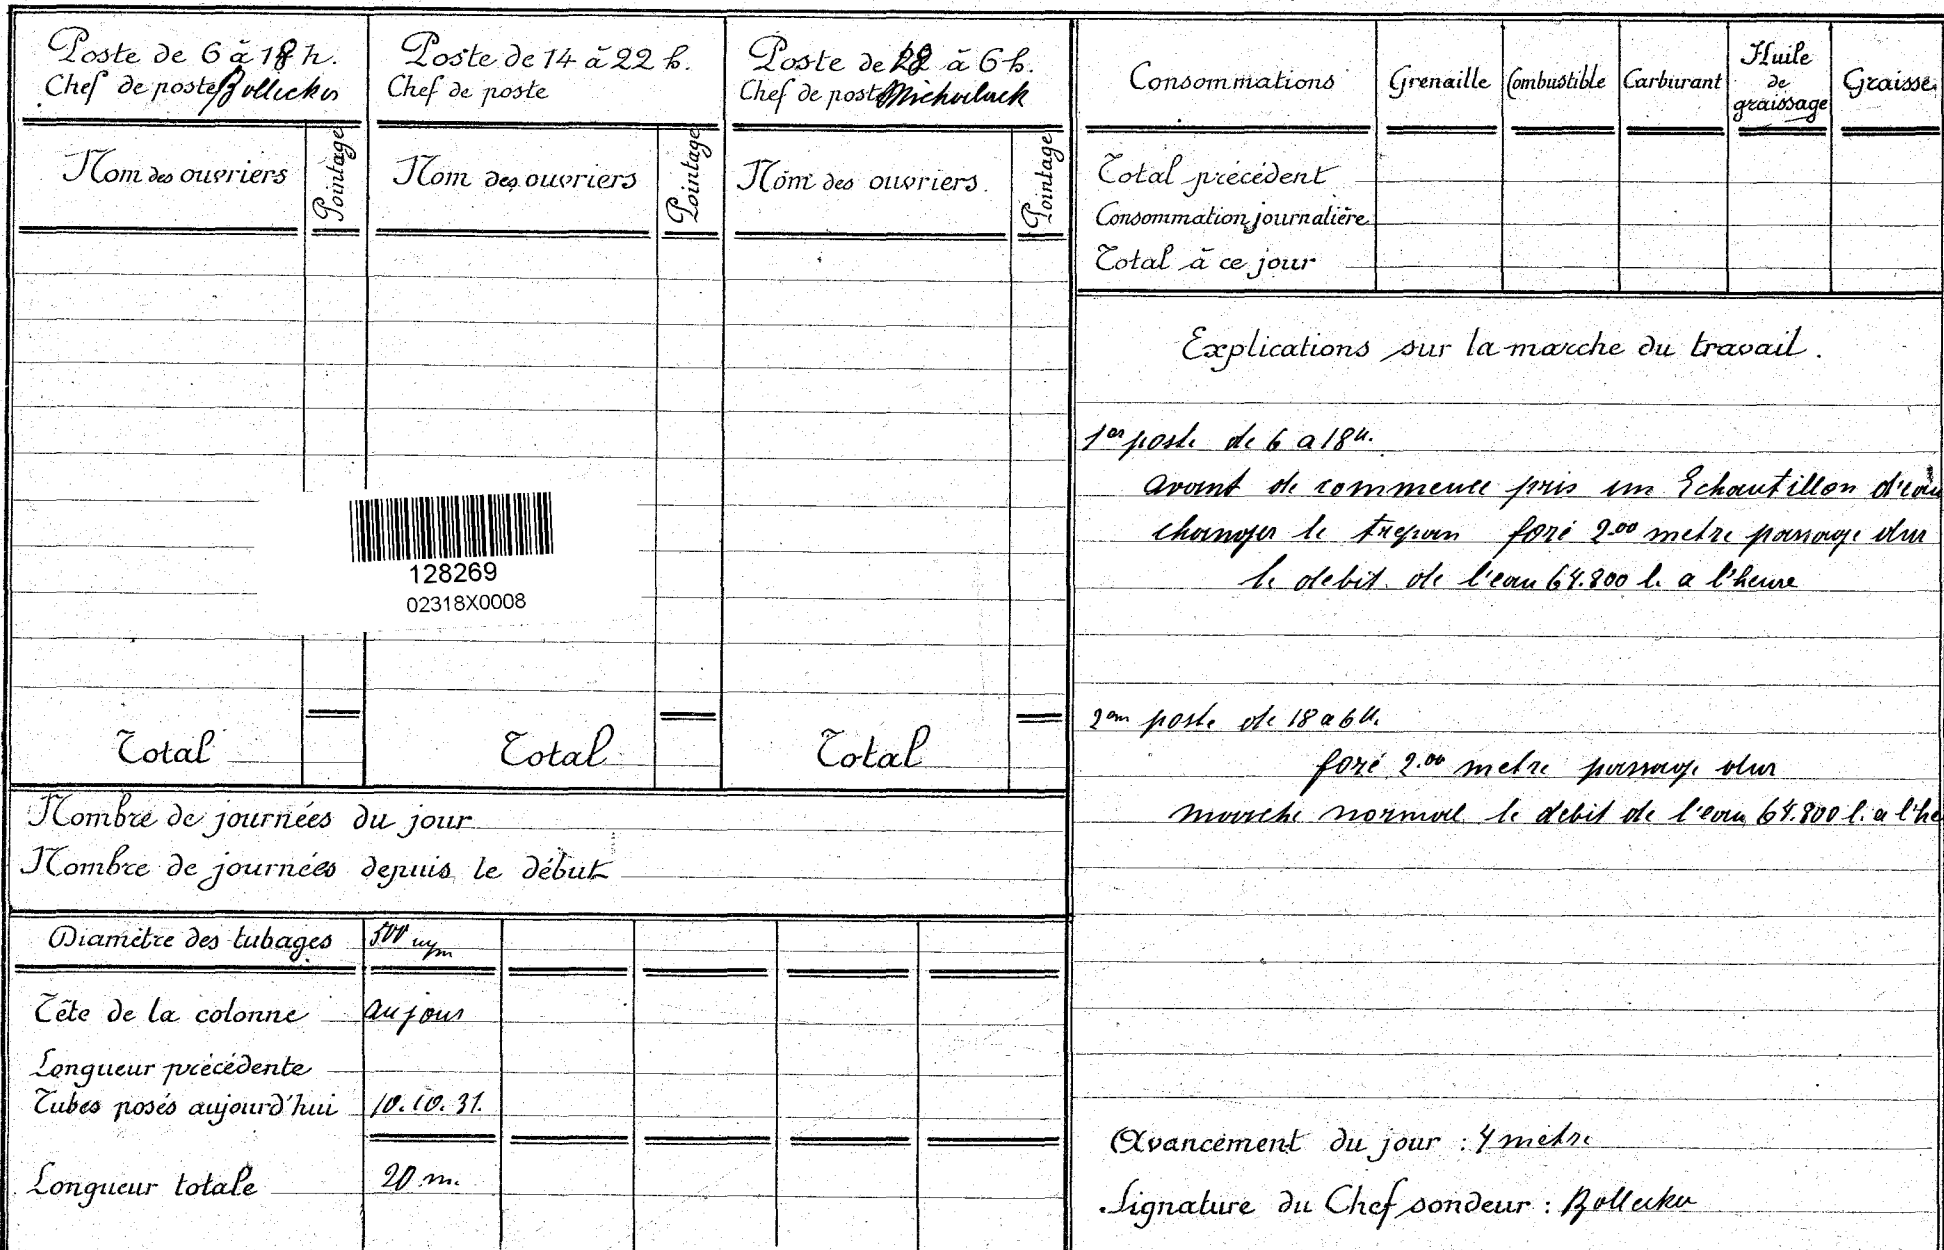 Poste de 6 à 18 h.
Chef de poste Bollecker
Nom des ouvriers
Pointage
Total
Poste de 14 à 22 h.
Chef de poste
Nom des ouvriers
Pointage
Total
Poste de 18 à 6 h.
Chef de poste
Nom des ouvriers.
Pointage
Total
128269
02318X0008
Nombre de journées du jour
Nombre de journées depuis le début
Diamètre des tubages 500 m/m
Tête de la colonne au jour
Longueur précédente
Tubes posés aujourd'hui 10.10.31.
Longueur totale 20 m.
Consommations Grenaille Combustible Carburant Huile de graissage Graisse
Total précédent
Consommation journalière
Total à ce jour
Explications sur la marche du travail.
1er poste de 6 a 18 H.
avant de commence pris un Echantillon d'eau
changer le trepan foré 2.00 metre passage dur
le debit de l'eau 64.800 l. a l'heure
2em poste de 18 a 6 H.
foré 2.00 metre passage dur
marche normal le debit de l'eau 64.800 l. a l'he
Avancement du jour : 4 metre
Signature du Chef sondeur : Bollecker